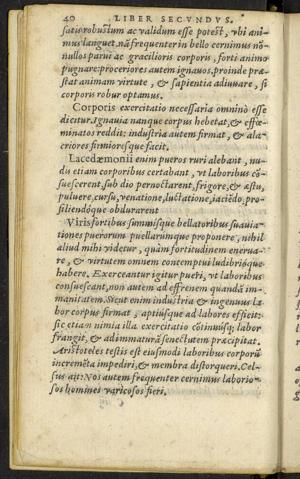 40 LIBER SECVNDVS.
satis robustum ac validum esse potest, vbi ani-
mus languet, nã frequenter in bello cernimus nõ-
nullos parui ac gracilioris corporis, forti animo
pugnare: proceriores autem ignauos, proinde præ-
stat animam virtute, & sapientia adiuuare, si
corporis robur optamus.
Corporis exercitatio necessaria omninò esse
dicitur. Ignauia nanque corpus hebetat, & effœ-
minatos reddit: industria autem firmat, & ala-
criores firmioresque facit.
Lacedæmonii enim pueros ruri alebant, nu-
dis etiam corporibus certabant, vt laboribus cõ-
suescerent, sub dio pernoctarent, frigore, & æstu,
puluere, cursu, venatione, luctatione, iaciẽdo, pro-
siliendóque obdurarent
Viris fortibus summisque bellatoribus suauia-
tiones puerorum puellarumque proponere, nihil
aliud mihi videtur, quàm fortitudinem eneruа-
re, & virtutem omnem contemptui ludibrióque
habere. Exerceantur igitur pueri, vt laboribus
consuescant, non autem ad effrenem quandã im-
manitatem. Sicut enim industria & ingenuus la-
bor corpus firmat, aptiusque ad labores efficit:
sic etiam nimia illa exercitatio cõtinuúsq; labor
frangit, & ad immaturã senectutem præcipitat.
Aristoteles testis est eiusmodi laboribus corporũ
incremẽta impediri, & membra distorqueri. Cel-
sus ait: Nos autem frequenter cernimus laborio-
sos homines varicosos fieri.